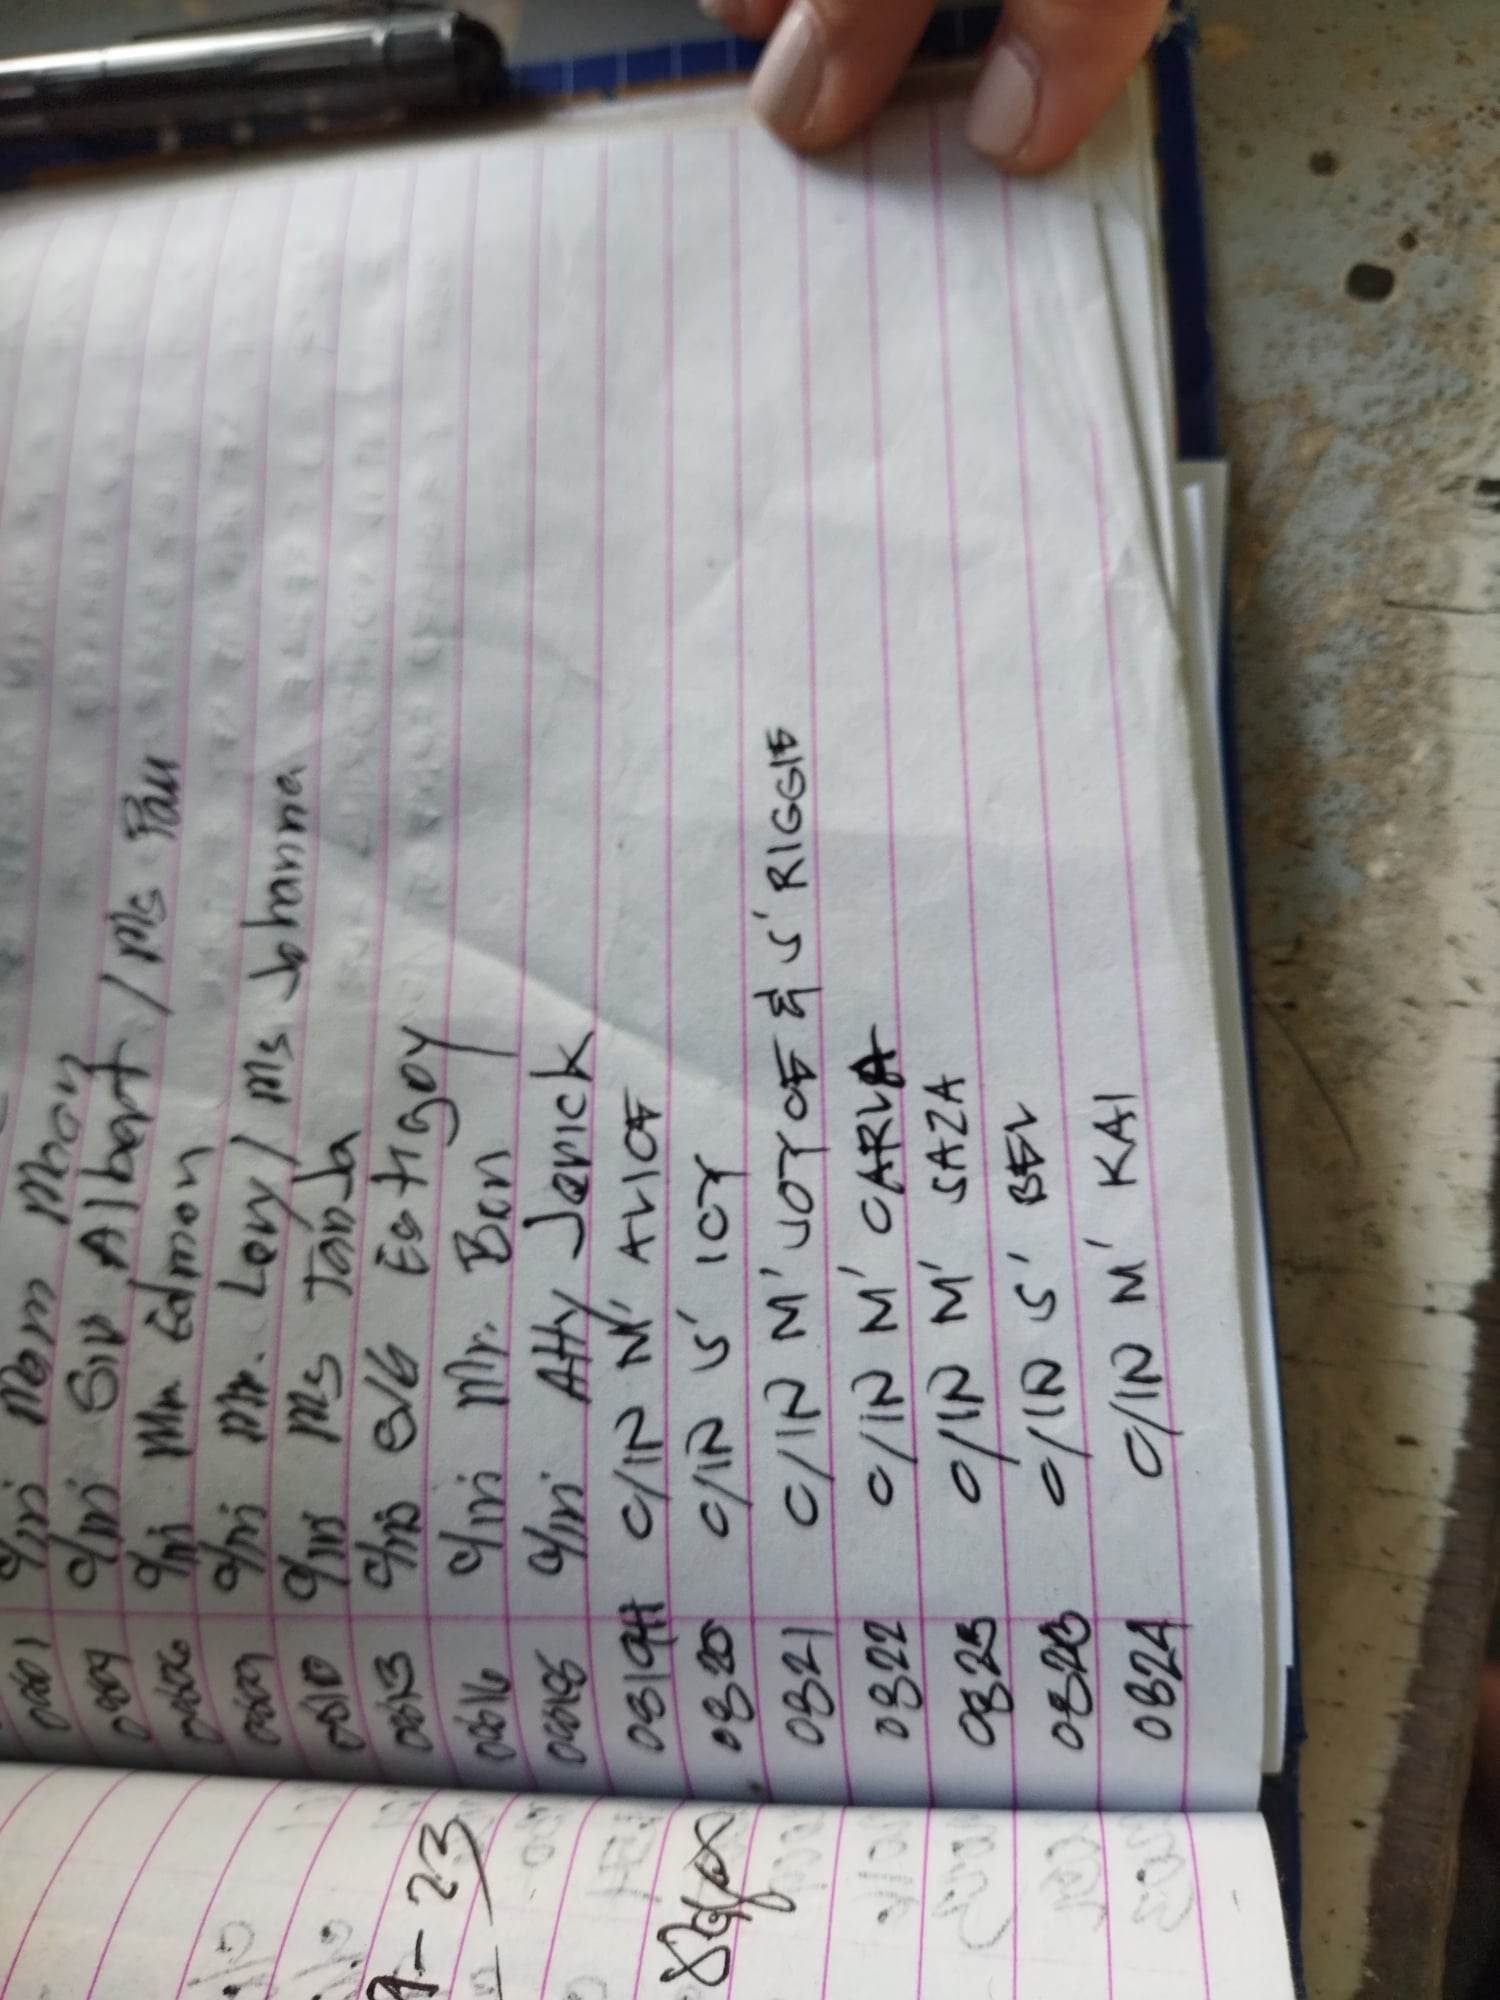 C/in Mam Mon
C/in Sir Albert / Ms. Pau
C/in Mr Edmon
0609 C/in Mr. Leny / Ms Johanna
0610 C/in Ms Tanja
0613 C/in S/G Estigoy
0616 C/in Mr. Ben
C/in Atty Jerick
0819H C/IN M' ALICE
0820 C/IN S' ICY
0821 C/IN M' JOYCE & S' RIGGIE
0822 C/IN M' CARLA
0823 C/IN M' SAZA
0823 C/IN S' BEL
0824 C/IN M' KAI
- 23